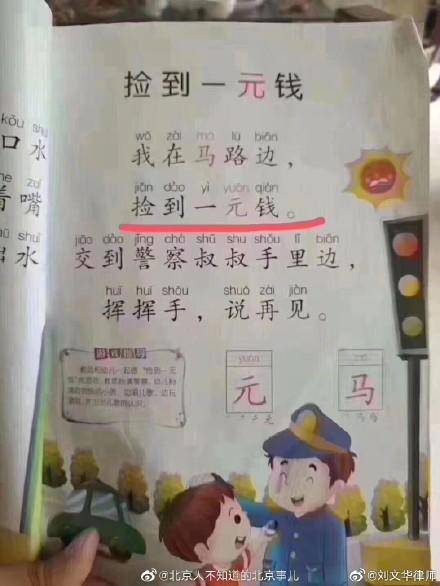 捡到一元钱
kǒu shu
口水
wǒ zài mǎ lù biān
我在马路边，
jiǎn dào yì yuán qián
捡到一元钱。
着嘴
jiāo dào jǐng chá shū shu shǒu lǐ biān
交到警察叔叔手里边，
水
huī huī shǒu shuō zài jiàn
挥挥手，说再见。
游戏指导
yuán
元
马
@北京人不知道的北京事儿
@刘文华律师